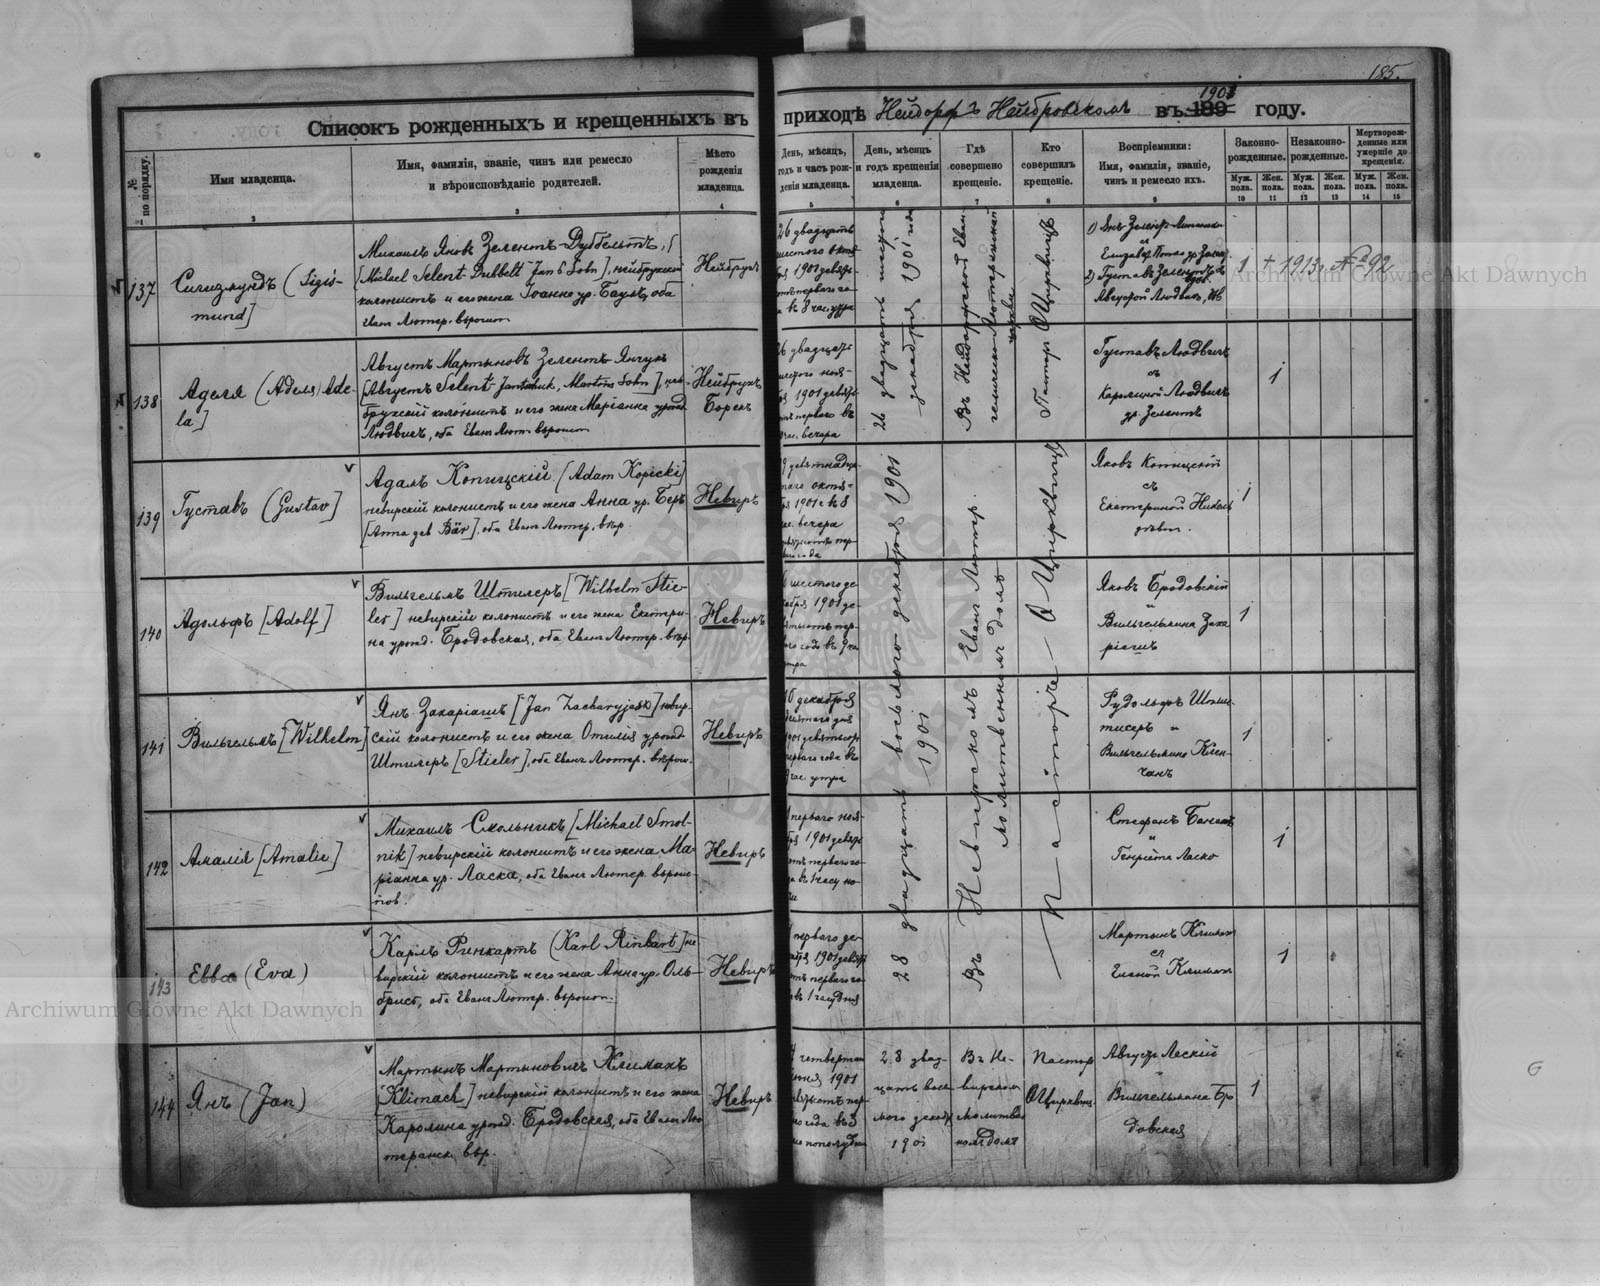 185.
Списокъ рожденныхъ и крещенныхъ въ приходѣ Нейдорфъ Нейбровскомъ въ 189 1901 году.
№ по порядку.
Имя младенца.
Имя, фамилія, званіе, чинъ или ремесло
и вѣроисповѣданіе родителей.
Мѣсто
рожденія
младенца.
День, мѣсяцъ,
годъ и часъ рож-
денія младенца.
День, мѣсяцъ
и годъ крещенія
младенца.
Гдѣ
совершено
крещеніе.
Кто
совершилъ
крещеніе.
Воспріемники:
Имя, фамилія, званіе,
чинъ и ремесло ихъ.
Законно-
рожденные.
Незаконно-
рожденные.
Мертворож-
денные или
умершіе до
крещенія.
Муж. пола.
Жен. пола.
Муж. пола.
Жен. пола.
Муж. пола.
Жен. пола.
1 2 3 4 5 6 7 8 9 10 11 12 13 14 15
137
Сигизмундъ (Sigis-
mund]
Михаилъ Яновъ Зелентъ-Дуббельтъ,
[Michael Selent-Dubbelt Jan's Sohn], нейбрухскій
колонистъ и его жена Іоанна ур. Бауль, оба
Еван Лютер. вѣроисп
Нейбрухъ
26 двадцать
шестого октя
бря 1901 девять
сотъ перваго го
да въ 8 час. утра
26 двадцать шестого
декабря 1901 года
Въ Нейдорфской Еван-
гелическо-Лютеранской
церкви
Пасторъ О Цирквицъ
1) Янъ Зелентъ
2) Густавъ Зелентъ съ
Августой Людвигъ
1 + 1913 № 92
138
Аделя (Аделя) Ade-
la]
Августъ Мартыновъ Зелентъ Янчукъ
[Августъ Selent-Jantschuk, Martins Sohn], ней
брухскій колонистъ и его жена Маріанна урожд.
Людвигъ, оба Еванг Лют вѣроисп
Нейбрухъ
Борекъ
26 двадцать
шестого ноя-
бря 1901 девять
сотъ перваго въ
час. вечера
Густавъ Людвигъ
съ
Каролиной Людвигъ
ур. Зелентъ
1
139
Густавъ (Gustav]
Адамъ Копицскій [Adam Kopicki]
невирскій колонистъ и его жена Анна ур. Беръ
[Anna geb Bär], оба Еванг Лютер. вѣр.
Невиръ
19 девятнадца
таго октя-
бря 1901 г. въ 8
час. вечера
девятсотъ пер
ваго года
28 двадцать восьмого декабря 1901
1901
Въ Невирскомъ Еванг Лютер.
молитвенномъ домѣ
Пасторъ — О Цирквицъ
Яковъ Копицскій
съ
Екатериной Николь
1
140
Адольфъ [Adolf]
Вильгельмъ Штилеръ [Wilhelm Stie-
ler] невирскій колонистъ и его жена Екатери-
на урожд. Бродовская, оба Еванг Лютер. вѣр.
Невиръ
6 шестого де
кабря 1901 де
вятьсотъ пер
ваго года въ 9 час
утра
Яковъ Бродовскій
и
Вильгельмина Заха
ріашъ
1
141
Вильгельмъ [Wilhelm]
Янъ Захаріашъ [Jan Zacharyjasz] невир-
скій колонистъ и его жена Отилія урожд
Штилеръ [Stieler], оба Еванг Лютер. вѣроисп.
Невиръ
10 декабря
десятаго дня
1901 девятьсотъ
перваго года въ
час. утра
Рудольфъ
и
Вильгельмина
1
142
Амалія [Amalie]
Михаилъ Смольникъ [Michael Smol-
nik] невирскій колонистъ и его жена Ма-
ріанна ур. Ласка, оба Еванг Лютер. вѣроис-
пов.
Невиръ
1 перваго ноя-
бря 1901 девять
сотъ перваго го-
да въ 1 часу но-
чи
Стефанъ
и
Генріета Ласко
1
143
Евва (Eva)
Карлъ Ринкартъ (Karl Rinkart] не-
вирскій колонистъ и его жена Анна ур. Оль-
брисъ, оба Еванг Лютер. вѣроисп.
Невиръ
1 перваго де
кабря 1901 девят
сотъ перваго го-
да въ 1 часу дня
Мартынъ Климахъ
съ
Еленой Климахъ
1
144
Янъ (Jan)
Мартынъ Мартыновичъ Климахъ
[Klimach] невирскій колонистъ и его жена
Каролина урожд. Бродовская, оба Еванг Лю
теранск. вѣр.
Невиръ
4 четвертаго
1901
девятьсотъ пер
ваго года въ 3
час пополудни
28 двад-
цать вось
мого декабря
1901
Въ Не-
вирскомъ
молитвен
номъ домѣ
Пасторъ
О Цирквицъ
Августъ Лескій
и
Вильгельмина Бро
довская
1
Archiwum Główne Akt Dawnych
Archiwum Główne Akt Dawnych